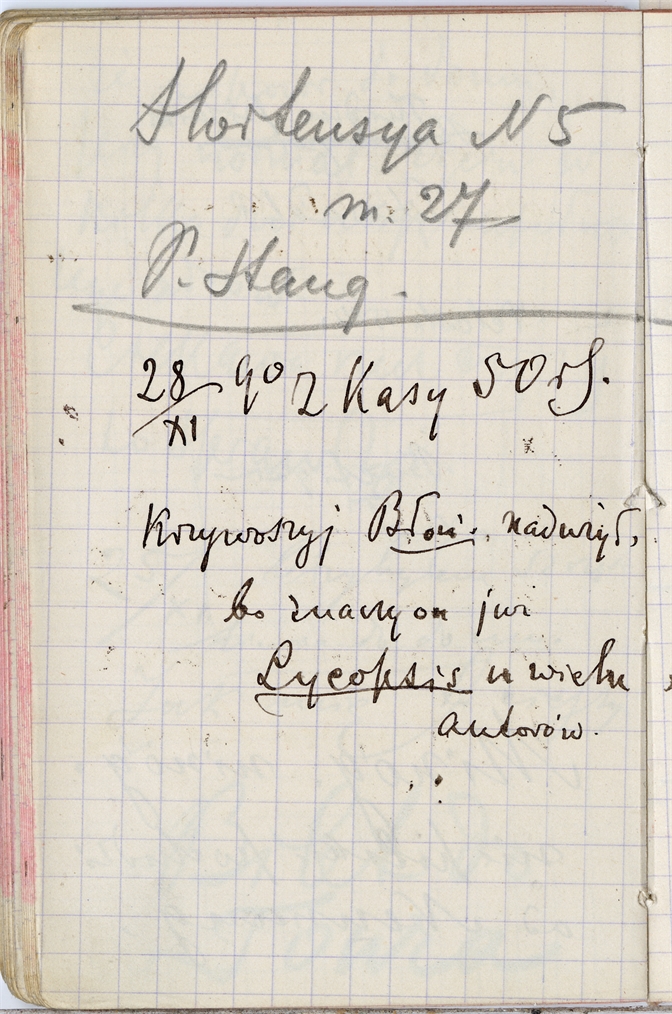 Hortensya N 5
m. 27
P. Stang.
28/XI 90 z Kasy 50 rS.
Krzywoszyj Błoń. nadużył,
bo znaczy on już
Lycopsis u wielu
autorów.